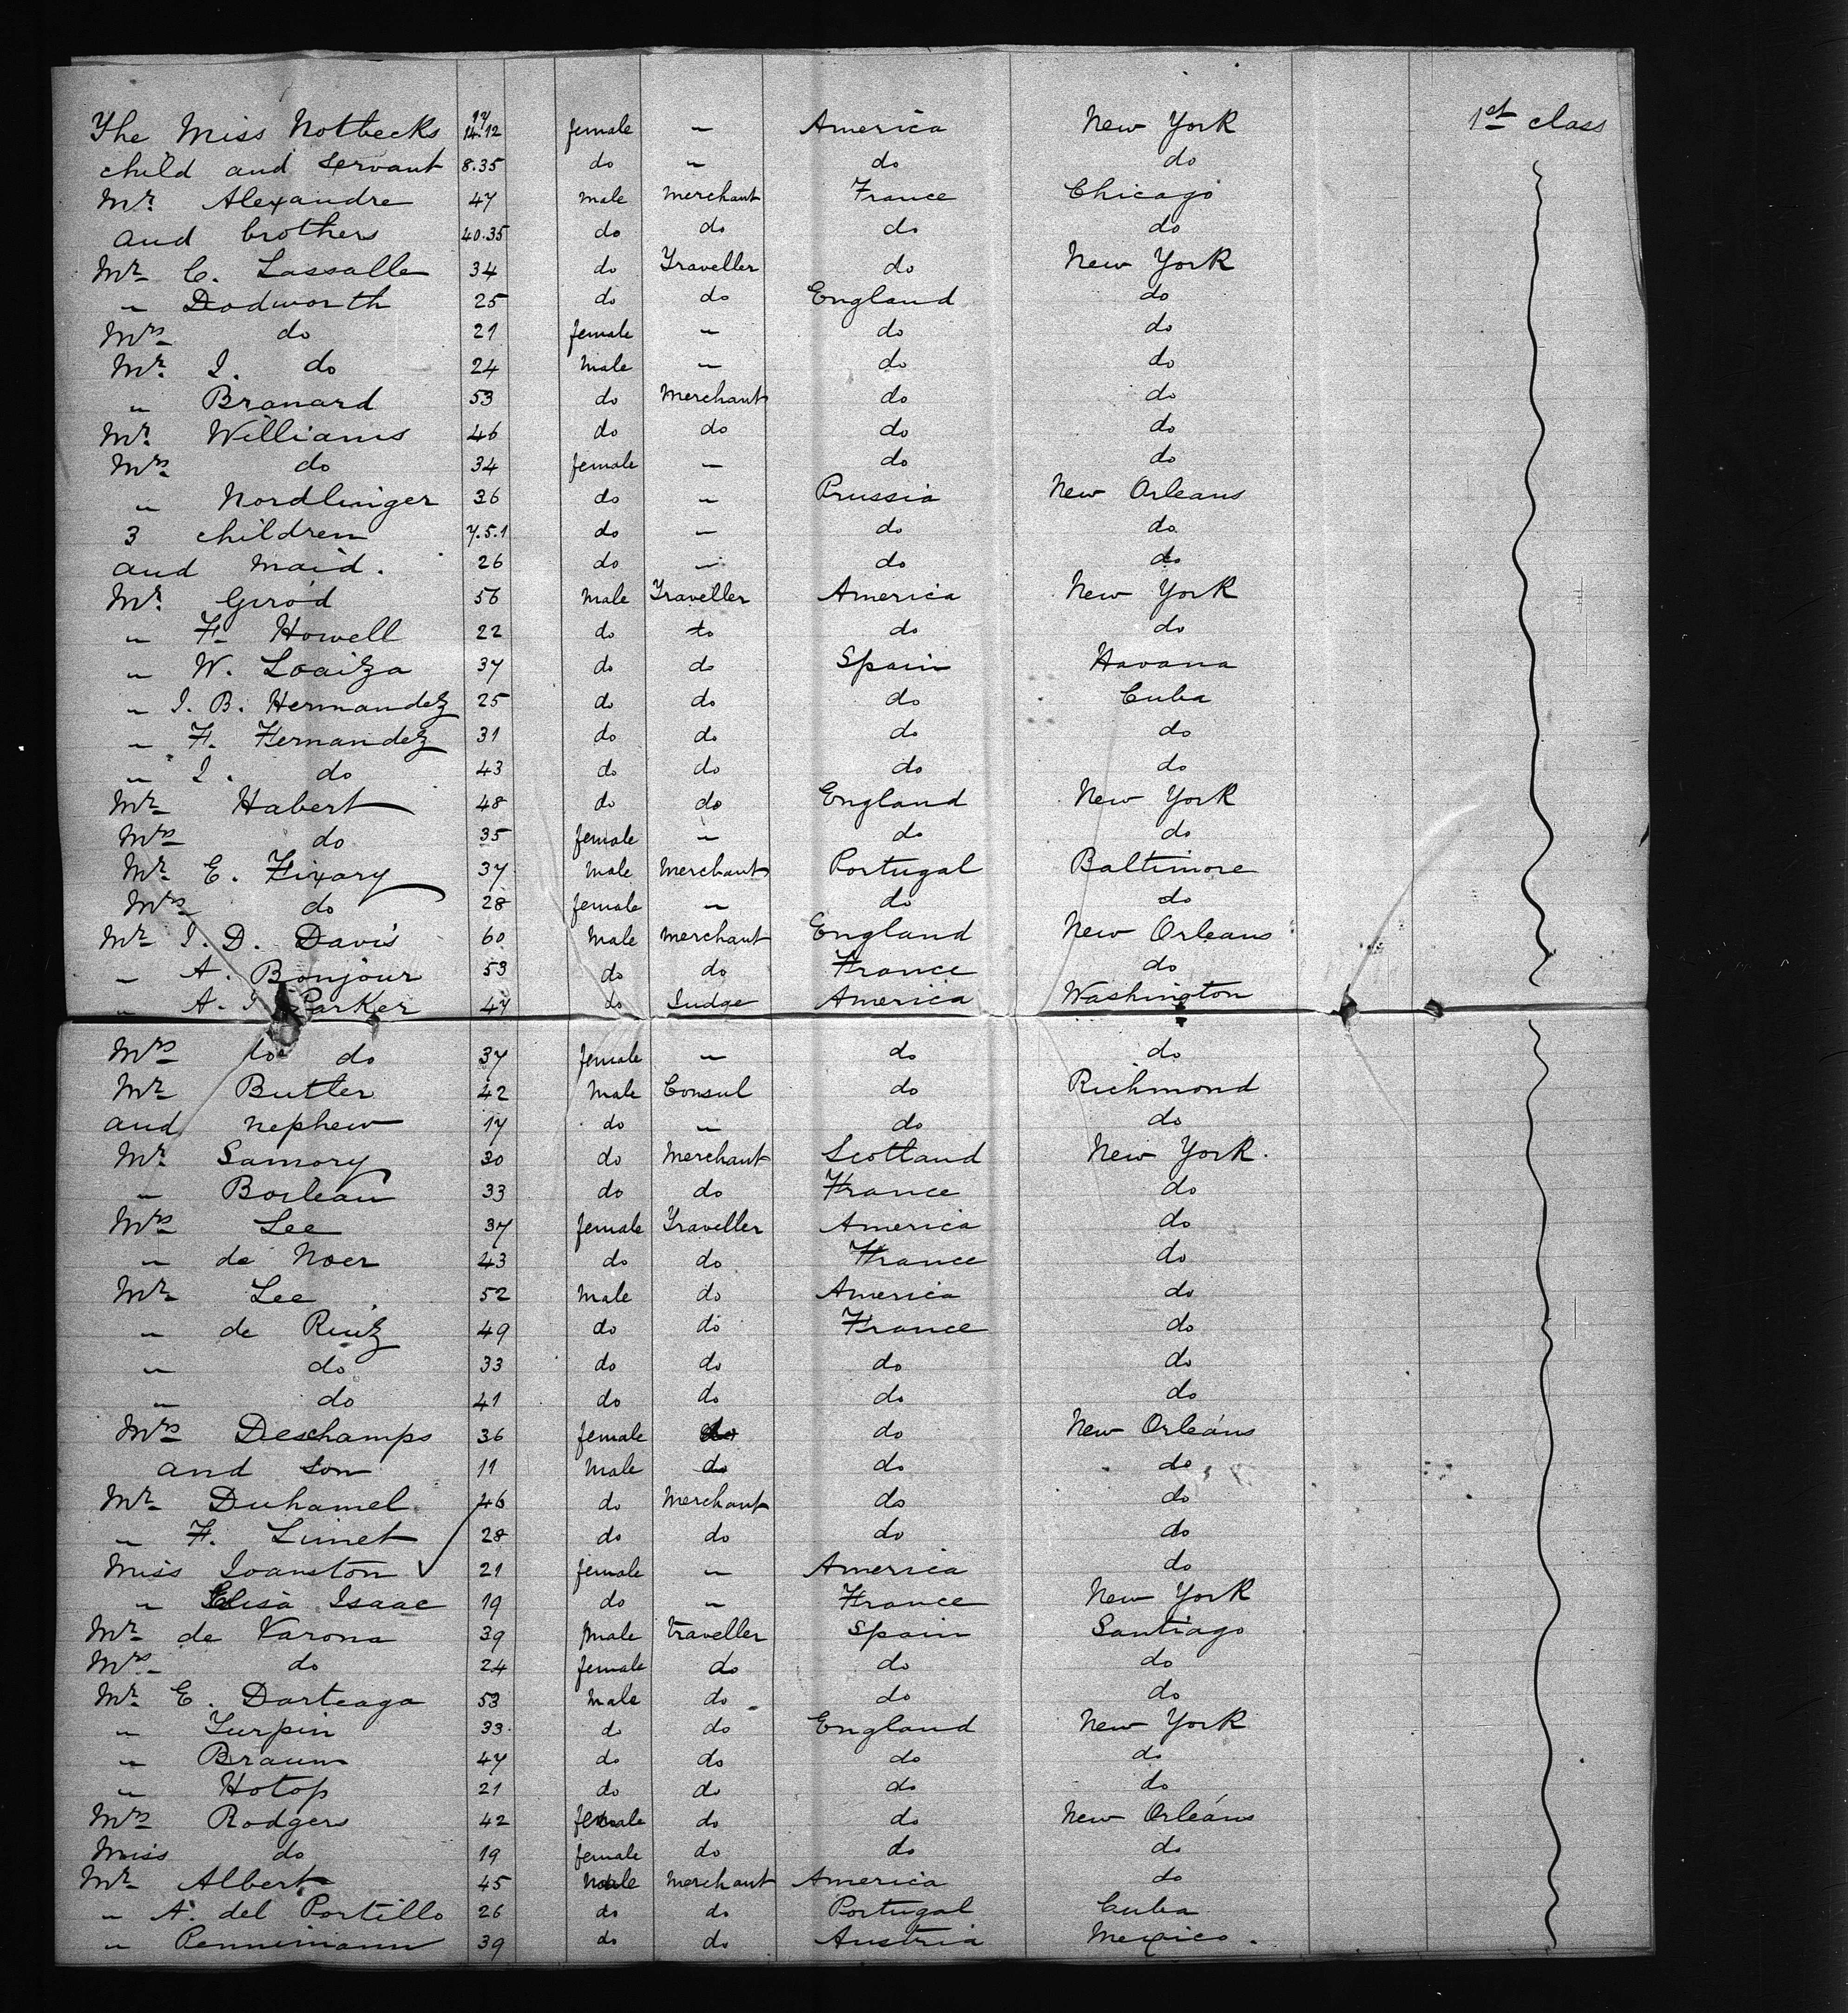 The Miss Notbecks 17 14.12 female " America New York 1st class
child and servant 8.35 do " do do
Mr. Alexandre 47 male merchant France Chicago
and brothers 40.35 do do do do
Mr C. Lassalle 34 do Traveller do New York
" Dodworth 25 do do England do
Mrs do 21 female " do do
Mr. I. do 24 male " do do
" Branard 53 do Merchant do do
Mr. Williams 46 do do do do
Mrs do 34 female " do do
" Nordlinger 36 do " Prussia New Orleans
3 children 7.5.1 do " do do
and maid. 26 do " do do
Mr. Girod 56 male Traveller America New York
" F. Howell 22 do do do do
" W. Loaiza 37 do do Spain Havana
" I. B. Hernandez 25 do do do Cuba
" F. Fernandez 31 do do do do
" I. do 43 do do do do
Mr Habert 48 do do England New York
Mrs do 35 female " do do
Mr E. Fixary 37 male merchant Portugal Baltimore
Mrs do 28 female " do do
Mr I. D. Davis 60 male merchant England New Orleans
" A. Bonjour 53 do do France do
" A. I. Parker 47 do Judge America Washington
Mrs do do 37 female " do do
Mr Butler 42 male Consul do Richmond
and nephew 17 do " do do
Mr. Samory 30 do Merchant Scotland New York.
" Borleau 33 do do France do
Mrs Lee 37 female Traveller America do
" de Noer 43 do do France do
Mr Lee 52 male do America do
" de Ruiz 49 do do France do
" do 33 do do do do
" do 41 do do do do
Mrs Deschamps 36 female do do New Orleans
and son 11 male do do do
Mr Duhamel 46 do Merchant do do
" F. Limet 28 do do do do
Miss Joanston 21 female " America do
" Elisa Isaac 19 do " France New York
Mr de Varona 39 male traveller Spain Santiago
Mrs do 24 female do do do
Mr E. Darteaga 53 male do do do
" Turpin 33 do do England New York
" Braun 47 do do do do
" Hotop 21 do do do do
Mrs Rodgers 42 female do do New Orleans
Miss do 19 female do do do
Mr Albert 45 male merchant America do
" A. del Portillo 26 do do Portugal Cuba
" Pennimann 39 do do Austria Mexico.